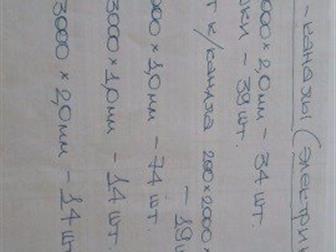 - каналы (электрич
000 х 2,0 мм - 34 шт.
ки - 39 шт.
т к/канала 200х2000х
- 19ш
000 х 1,0 мм - 74 шт.
3000 х 1,0 мм - 14 шт.
3000 х 2,0 мм - 14 шт